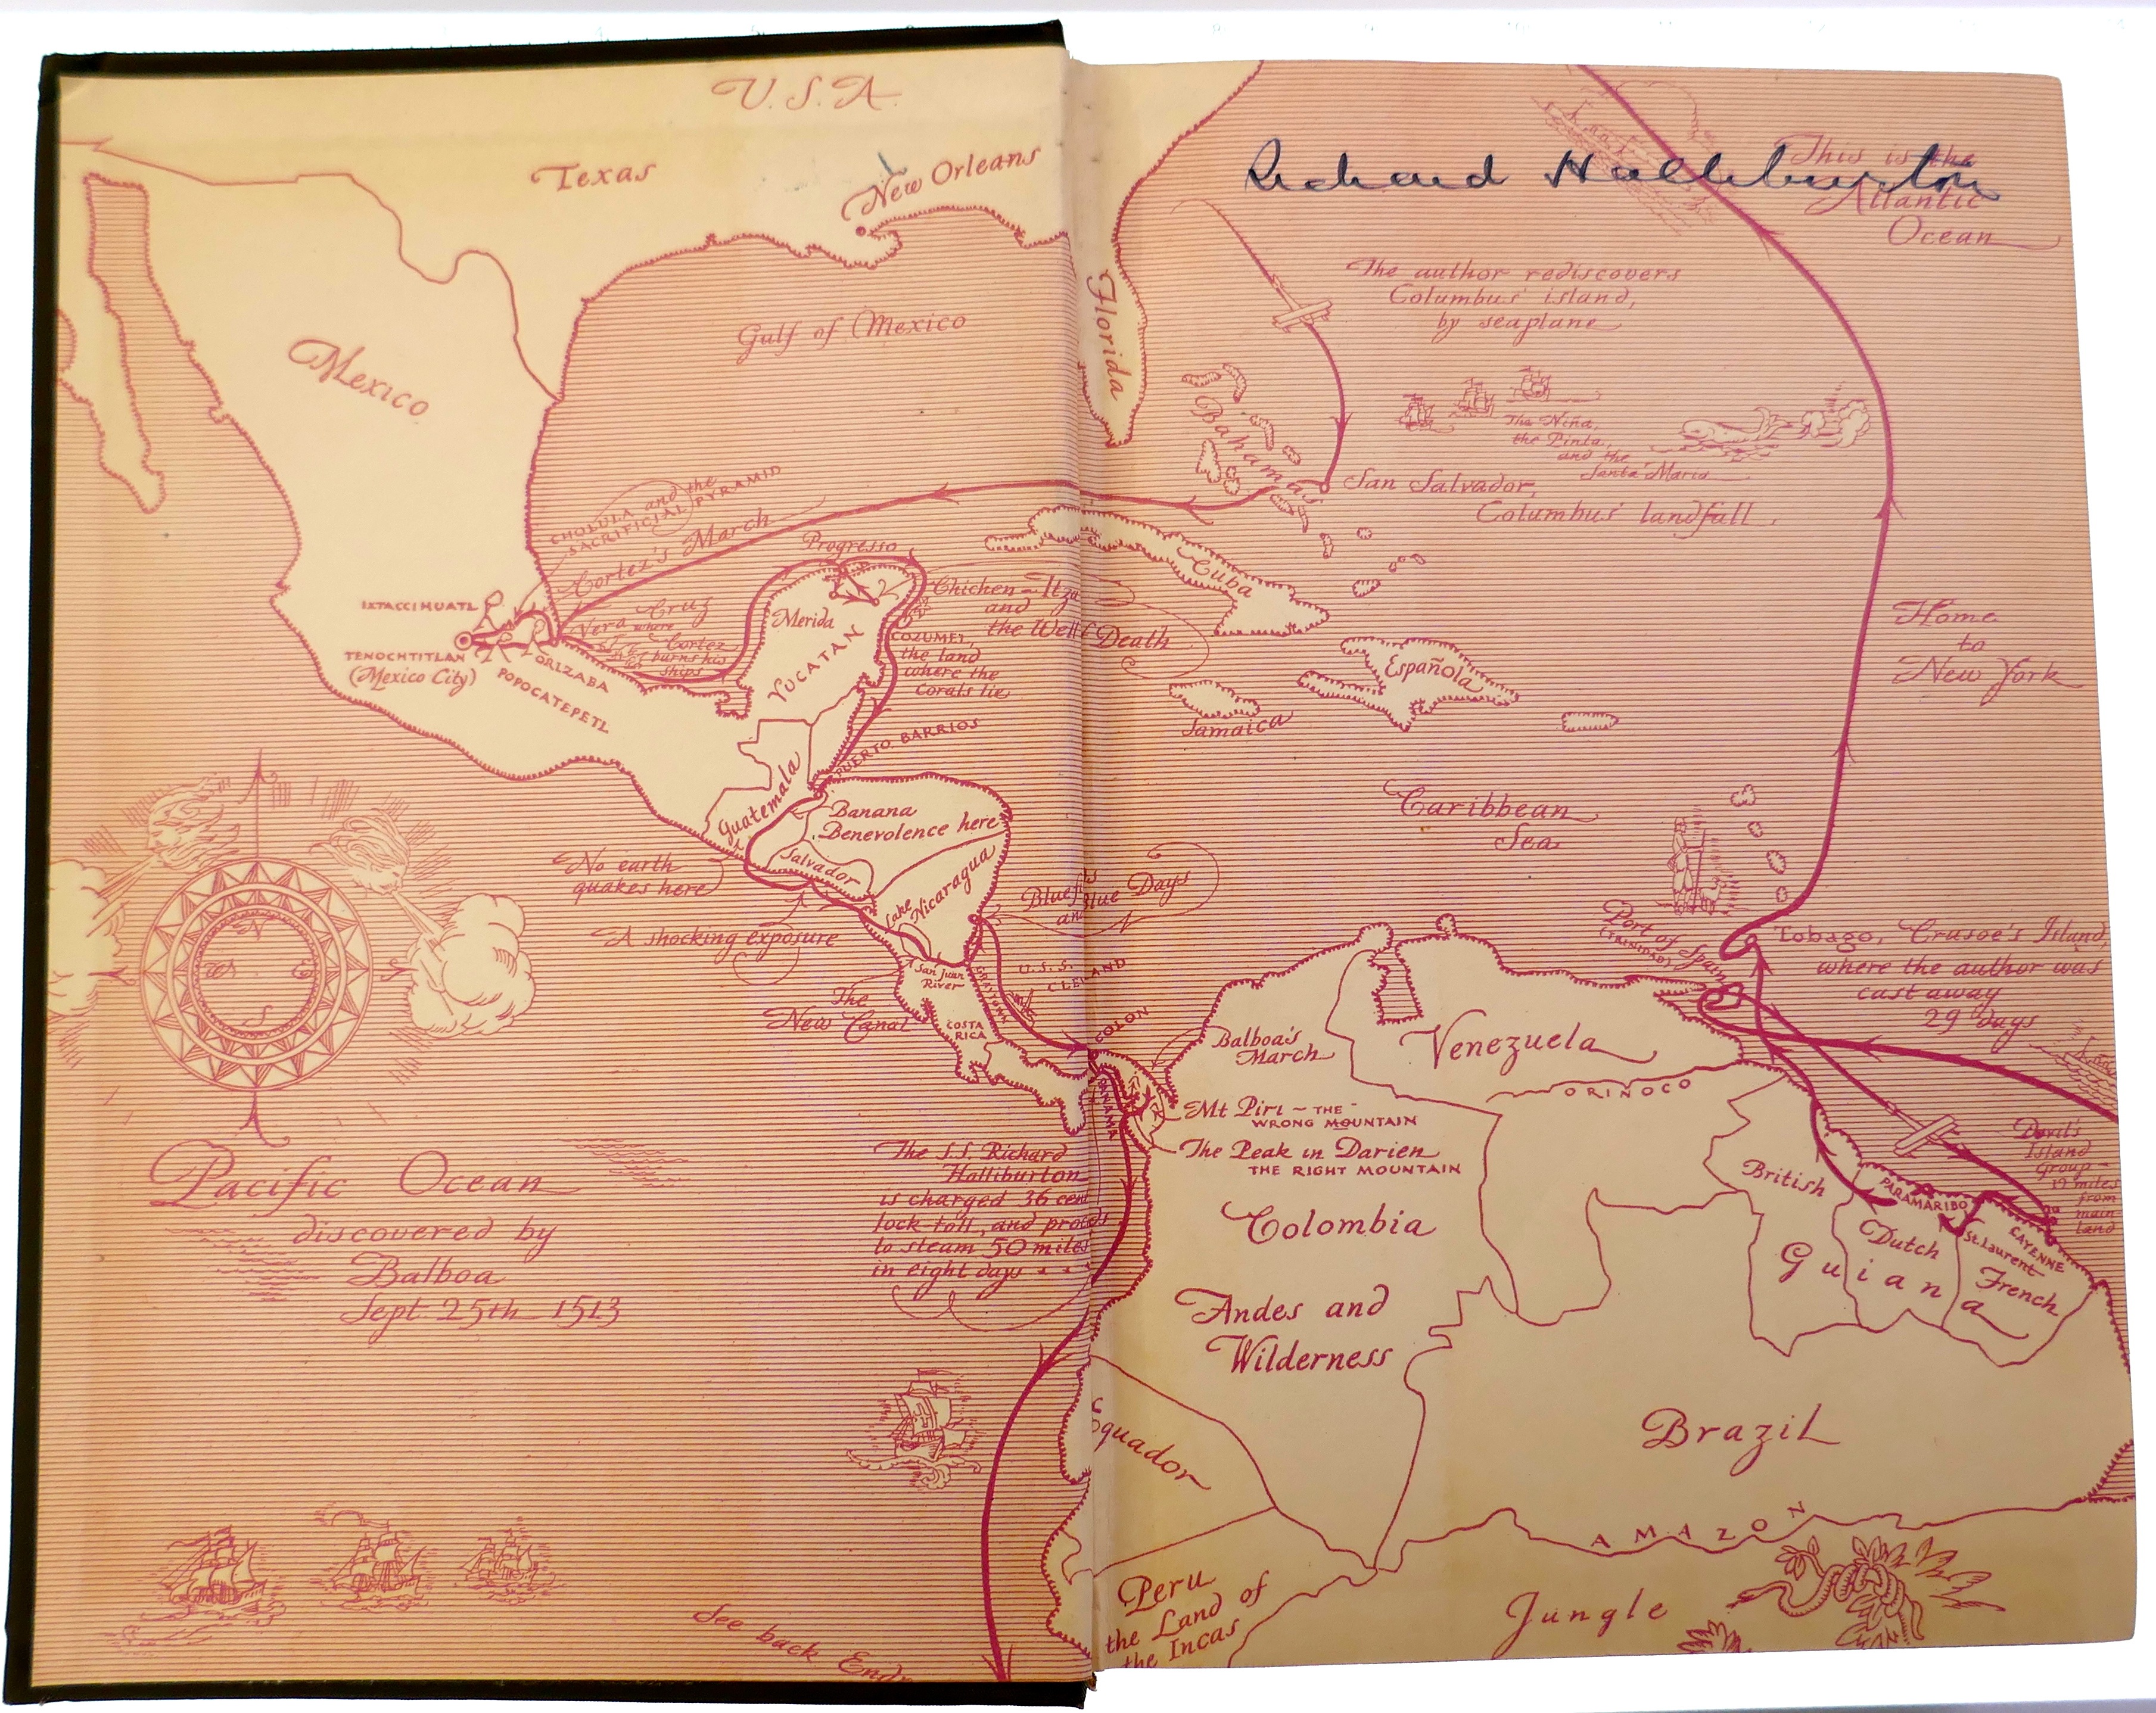 U.S.A.
Texas
New Orleans
Mexico
Gulf of Mexico
CHOLULA and the
SACRIFICIAL PYRAMID
Cortez's March
Progresso
IXTACCIHUATL
Vera Cruz
where
Cortez
burns his
ships
TENOCHTITLAN
(Mexico City)
ORIZABA
POPOCATEPETL
Merida
YUCATAN
Chichen-Itza
and
the Well of Death
COZUMEL,
the land
where the
Corals lie
PUERTO BARRIOS
Guatemala
Banana
Benevolence here
Salvador
No earth
quakes here
A shocking exposure
Lake
Nicaragua
Bluefields
and Blue Days
San Juan
River
GRAYTOWN
U.S.S.
CLEVELAND
The
New Canal
COSTA
RICA
COLON
PANAMA
N
W
E
S
Pacific Ocean
discovered by
Balboa
Sept. 25th 1513
The S.S. Richard
Halliburton
is charged 36 cent
lock toll, and proceeds
to steam 50 miles
in eight days
See back
Richard Halliburton
This is the
Atlantic
Ocean
Florida
The author rediscovers
Columbus' island,
by seaplane
Bahamas
The Niña,
the Pinta,
and the
Santa Maria
San Salvador,
Columbus' landfall.
Cuba
Española
Jamaica
Home
to
New York
Caribbean
Sea
Port of Spain
(TRINIDAD)
Tobago, Crusoe's Island,
where the author was
cast away
29 days
Balboa's
March
Venezuela
ORINOCO
Mt Piri ~ THE
WRONG MOUNTAIN
The Peak in Darien
THE RIGHT MOUNTAIN
Devil's
Island
Group -
12 miles
from
main-
land
British
PARAMARIBO
Dutch
St. Laurent
CAYENNE
French
Guiana
Colombia
Andes and
Wilderness
Equador
Brazil
AMAZON
Peru
the Land of
the Incas
Jungle